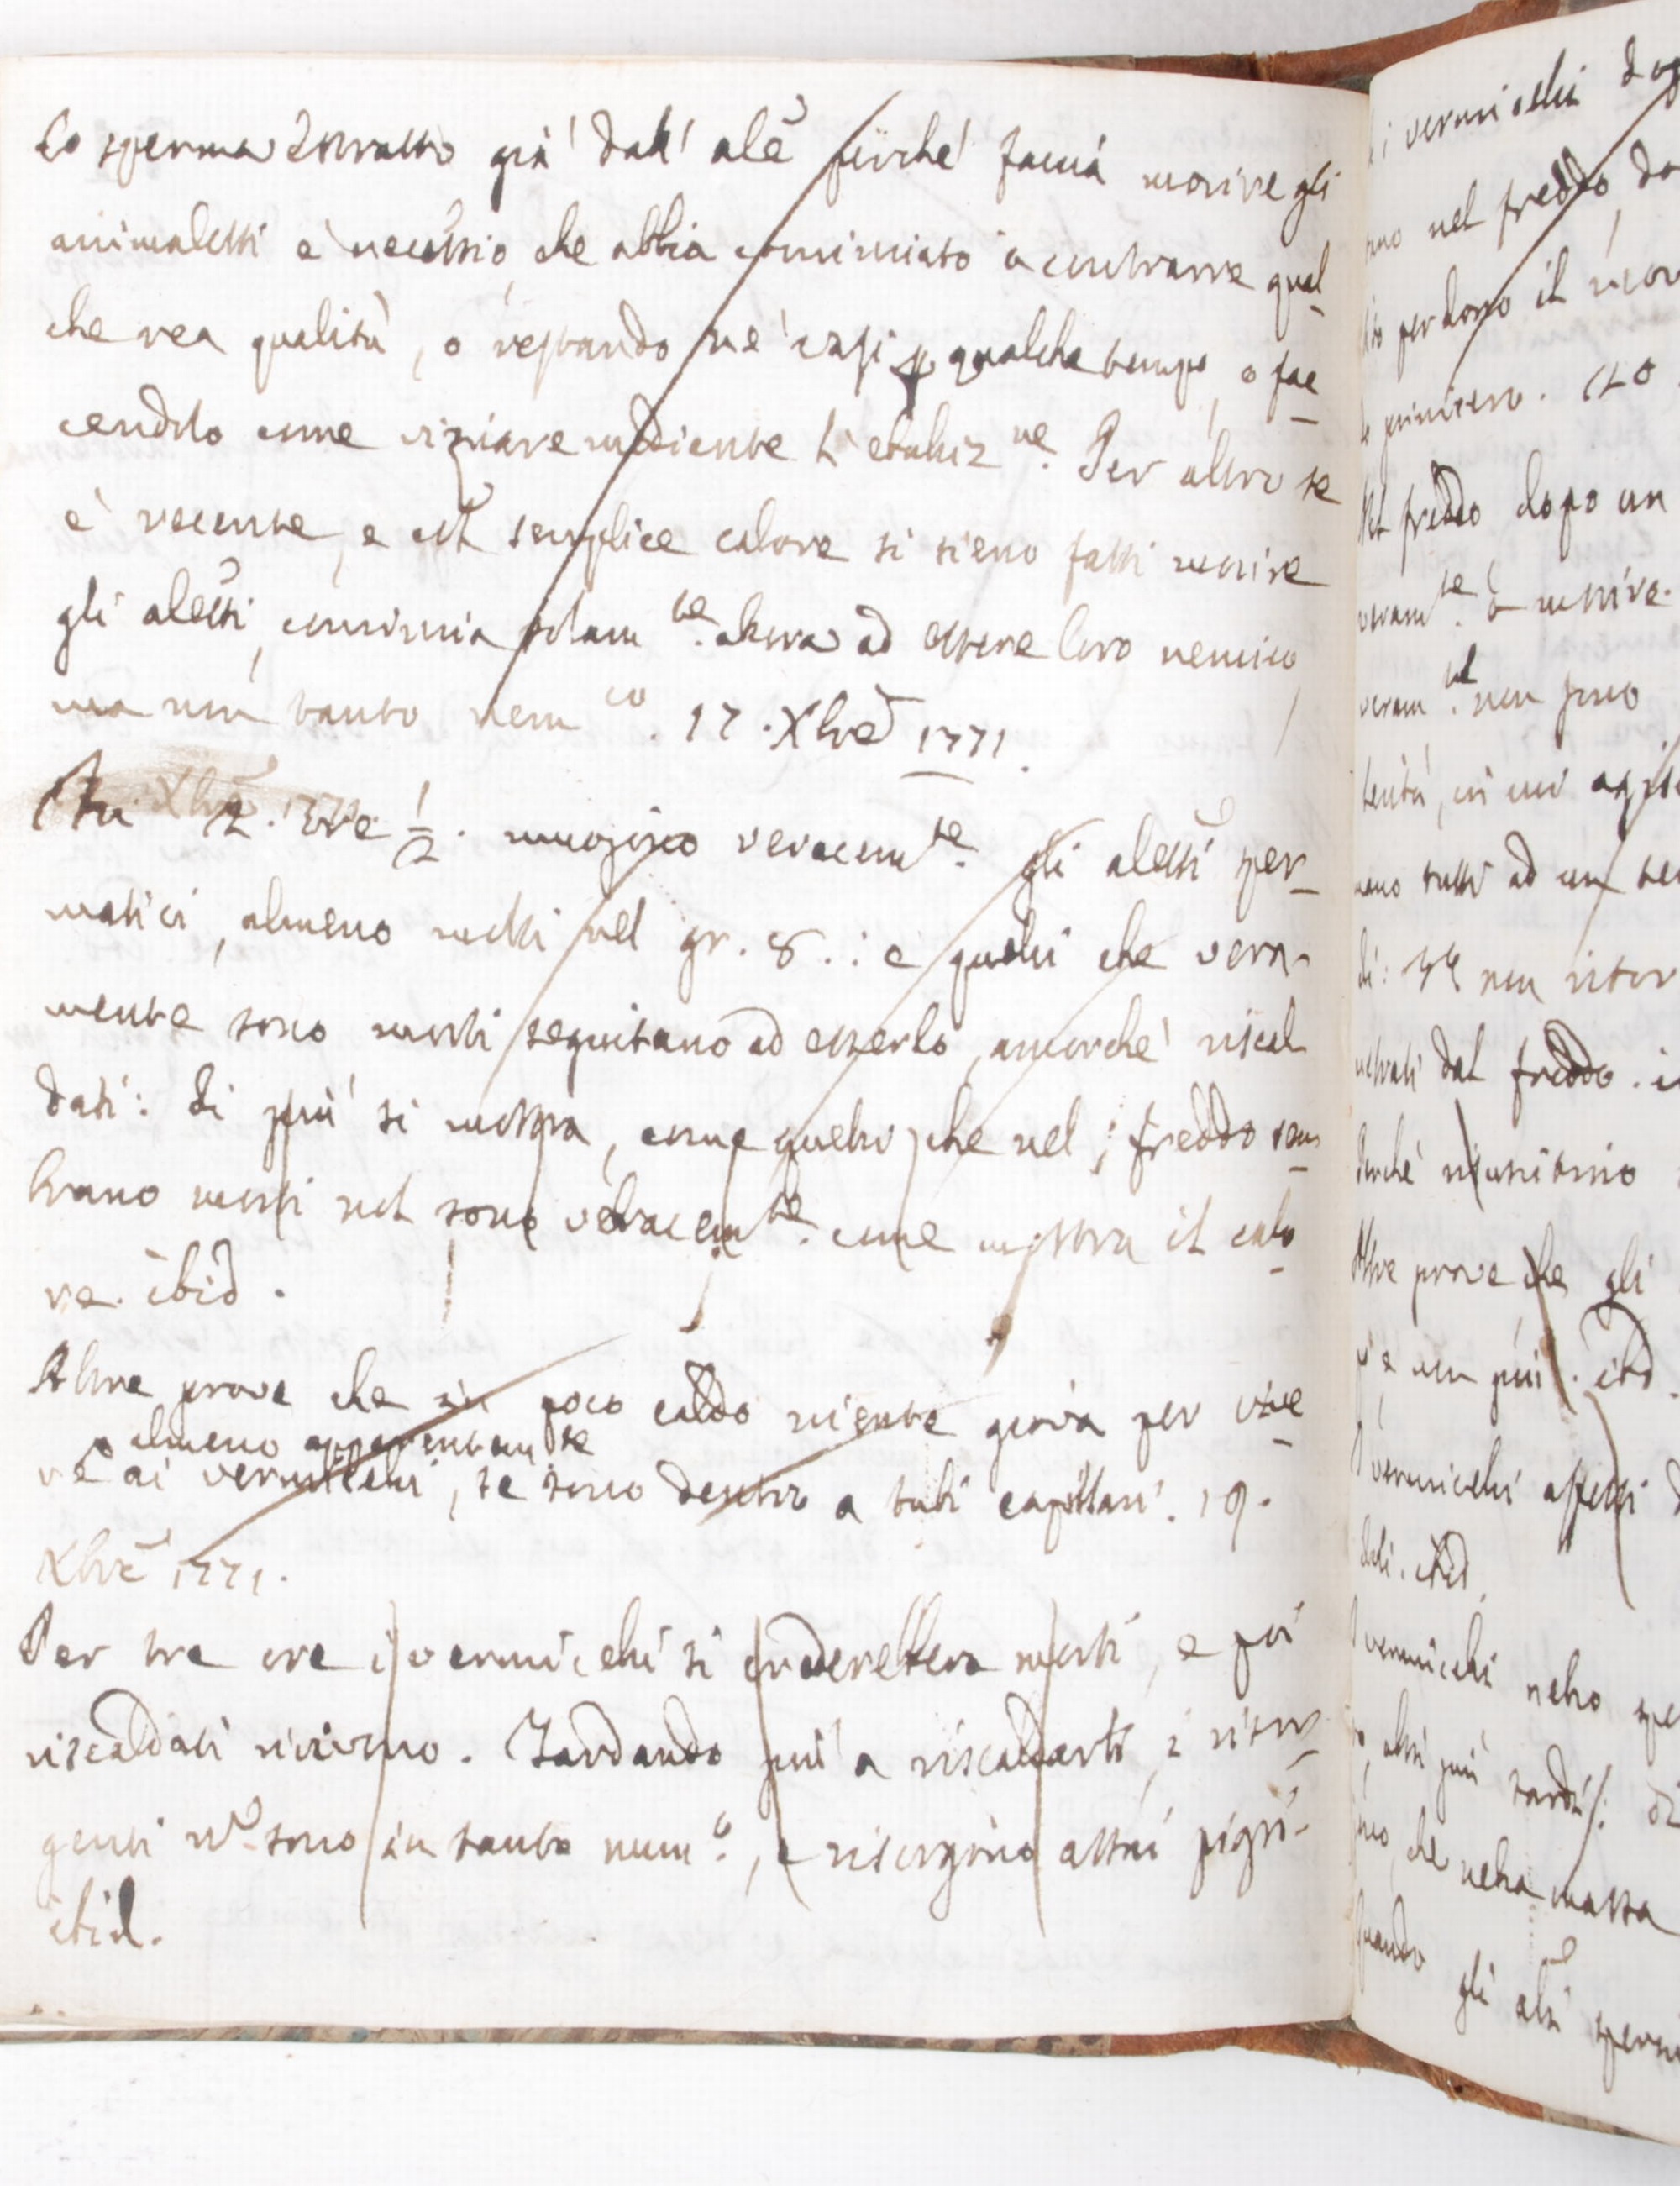 Lo sperma estratto già dall' ale perché faccia morire gli
animaletti è necessio, che abbia cominciato a contrarre qual-
che rea qualità, o restando ne' vasi p qualche tempo, o fac-
cendolo come viziare mediente l' ebuliz.ne Per altro se
è recente, e col semplice calore si sieno fatti morire
gli aletti, comincia solam.te allora ad essere loro nemico,
ma non tanto nem.co 17. Xbre 1771.
In 2. ore 1/2. muojono veracem.te gli aletti sper-
matici, almeno molti nel gr. 8.: e quelli che vera-
mente sono morti seguitano ad esserlo, ancorché riscal
dati: di più si mostra, come quelli, che nel freddo sem-
brano morti nol sono veracem.te come mostra il calo-
re. ibid.
Altre prove che un poco caldo niente giova per vive-
re almeno apparentem.te ai vermicelli, se sono dentro a tubi capillari. 19.
Xbre 1771.
Per tre ore i vermicelli si crederebbero morti, e poi
riscaldati rivivono. Tardando più a riscaldarli, i risor-
genti n sono in tanto num.o, e risorgono assai pigri.
ibid.
i vermicelli dop
nel freddo, do
perdono il mov
primiero.
Nel freddo dopo un
veram.te a morire.
veram.te non sono
tutti ad un
non ritor
dal freddo.
Altre prove che gli
è un più. ibid.
vermicelli affetti
ibid.
vermicelli nello spe
altri più tardi: di
che nella massa
quando gli ali sperm